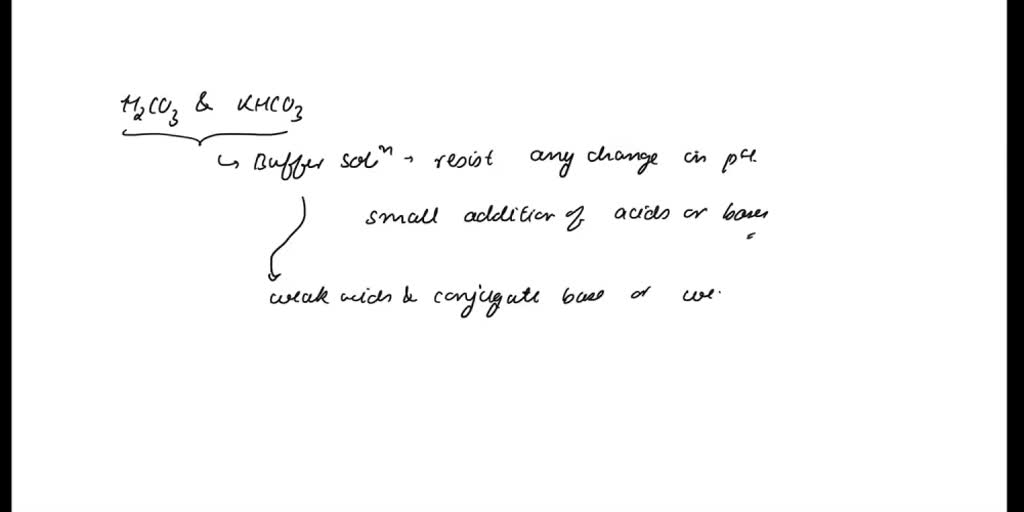 H₂CO₃ & KHCO₃
↳ Buffer solⁿ → resist any change in pH.
small addition of acids or bases
weak acids & conjugate base or we.